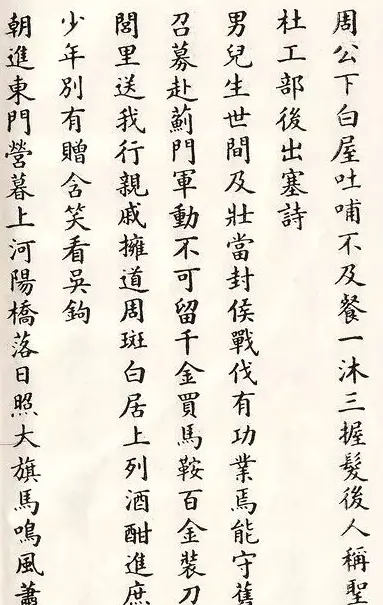 周公下白屋吐哺不及餐一沐三握髮後人稱聖
杜工部後出塞詩
男兒生世間及壯當封侯戰伐有功業焉能守舊
召募赴薊門軍動不可留千金買馬鞍百金裝刀
閭里送我行親戚擁道周斑白居上列酒酣進庶
少年別有贈含笑看吳鉤
朝進東門營暮上河陽橋落日照大旗馬鳴風蕭